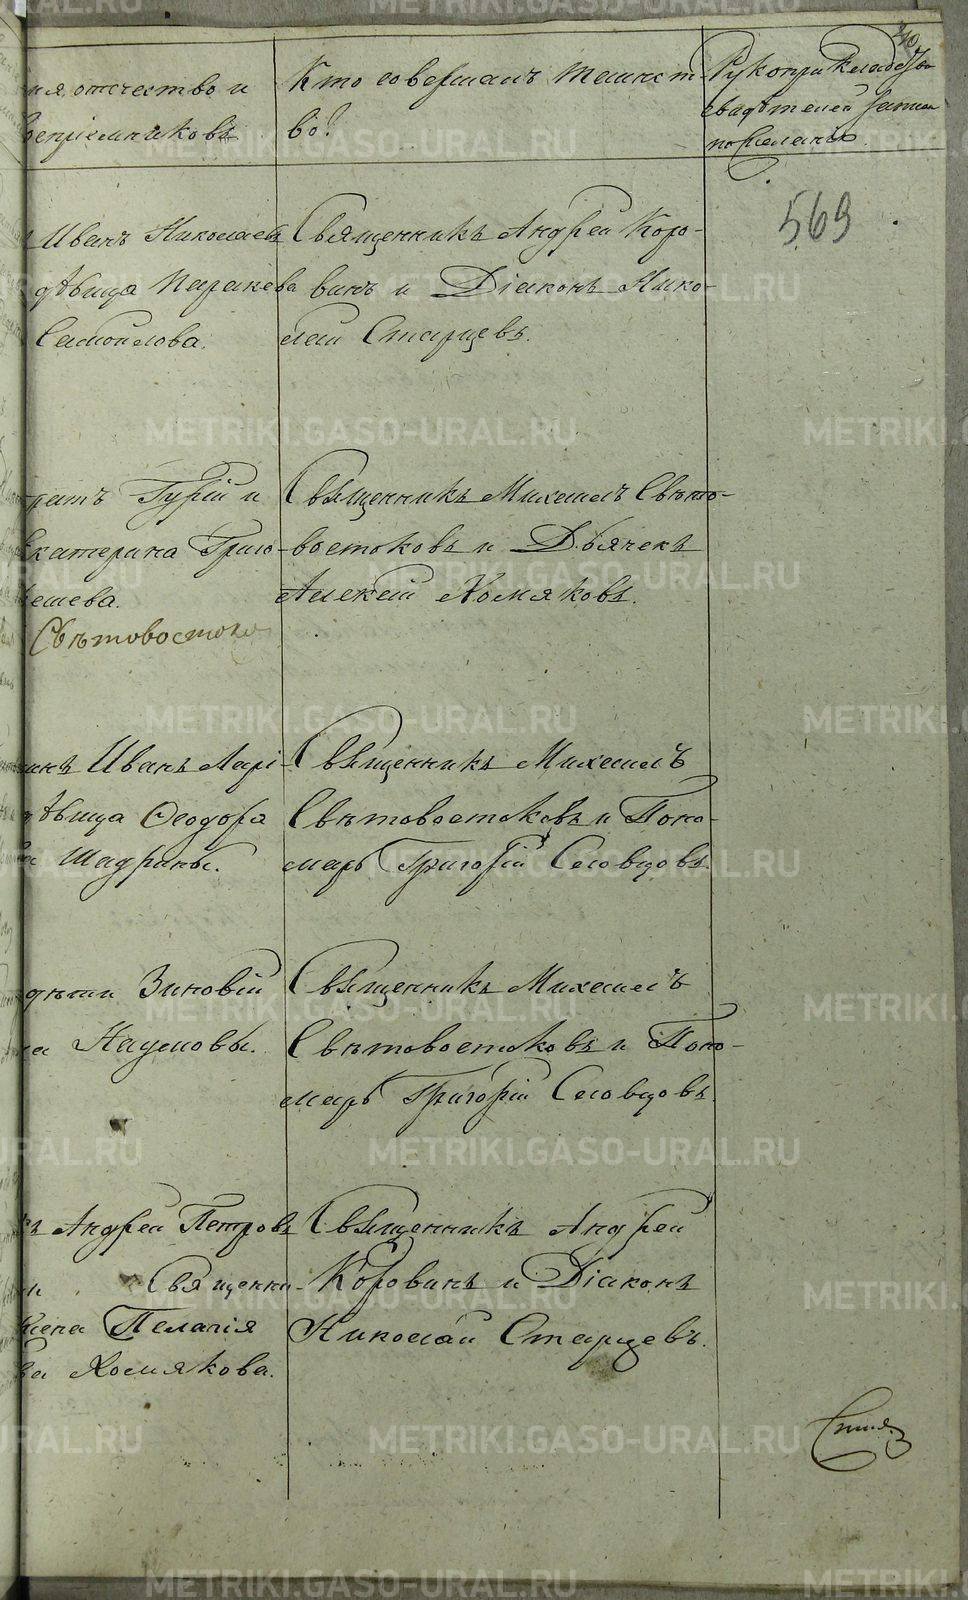 Кто совершалъ таинст-
во?
Рукоприкладство
свидѣтелей записи
по желанію.
отчество и
воспріемниковъ
569
Иванъ Николаевъ
дѣвица Параскева
Самойлова.
Священникъ Андрей Коро-
винъ и Діаконъ Нико-
лай Старцевъ.
Гурій и
Екатерина Григо-
Свѣтовостоко
Священникъ Михаилъ Свѣто-
востоковъ и Дьячекъ
Алексій Хомяковъ.
Иванъ Ларі-
дѣвица Ѳеодора
Шадрины.
Священникъ Михаилъ
Свѣтовостоковъ и Поно-
марь Григорій Словцовъ.
дѣти Зиновій
Наумовы.
Священникъ Михаилъ
Свѣтовостоковъ и Поно-
марь Григорій Словцовъ.
Андрей Петровъ
Священни-
жена Пелагія
Хомякова.
Священникъ Андрей
Коровинъ и Діаконъ
Николай Старцевъ.
METRIKI.GASO-URAL.RU